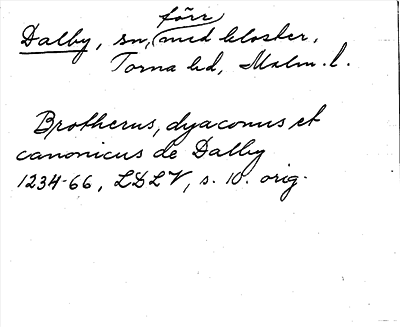 förr
Dalby, sn, (med kloster,
Torna hd, Malm. l.
Brotherus, dyaconus et
canonicus de Dalby
1234-66, LDLV, s. 10. orig.